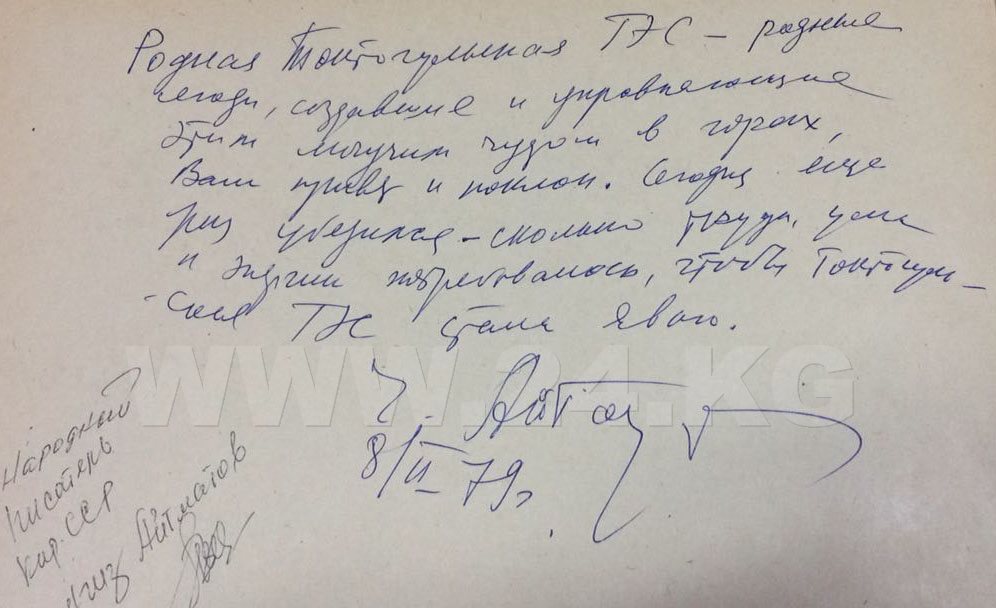 Родная Токтогульская ГЭС – родные
люди, создавшие и управляющие
этим могучим чудом в горах,
Вам привет и поклон. Сегодня еще
раз убедился – сколько труда, ума
и энергии потребовалось, чтобы Токтогуль-
ская ГЭС стала явью.
WWW.24.KG
Ч. Айтматов
8/II–79г.
Народный
писатель
Кир. ССР
Чингиз Айтматов